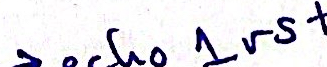 → echo 1rst